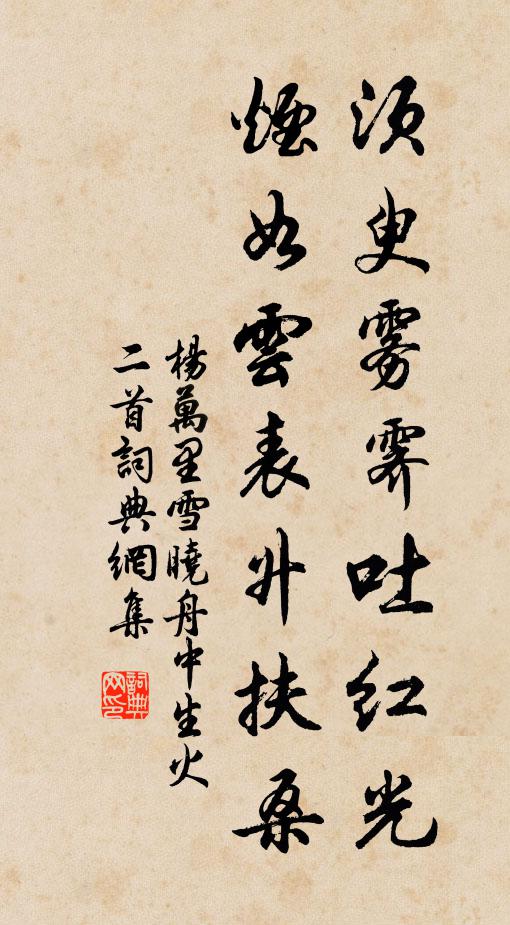 須臾霧霽吐紅光
煙如雲表升扶桑
楊萬里雪曉舟中生火
二首詞典網集
詞典網印